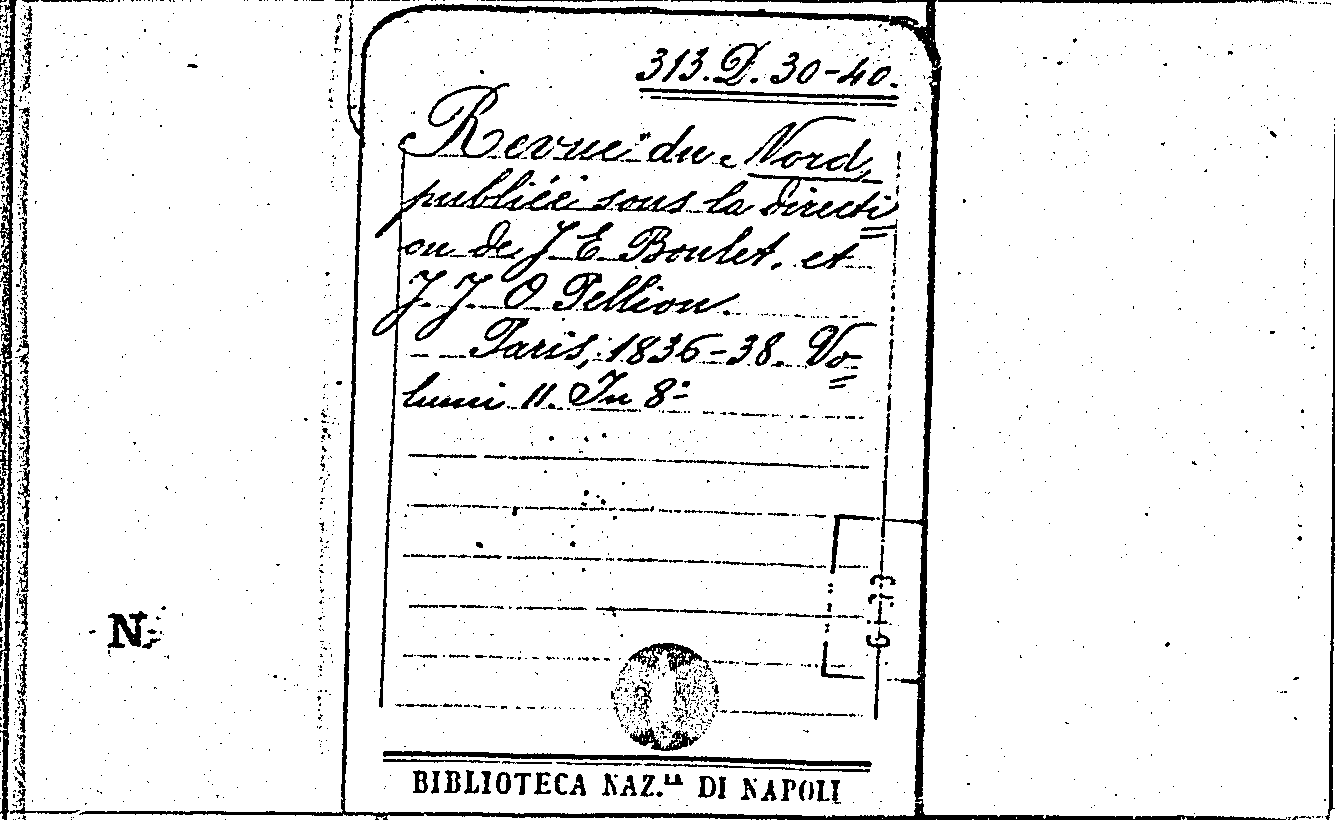 313. D. 30-40.
Revue du Nord,
publiée sous la directi
on de J E Boulet. et
J. J. O Pellion.
Paris, 1836-38. Vo=
lumi 11. In 8º
N
G-33
BIBLIOTECA NAZ.LA DI NAPOLI